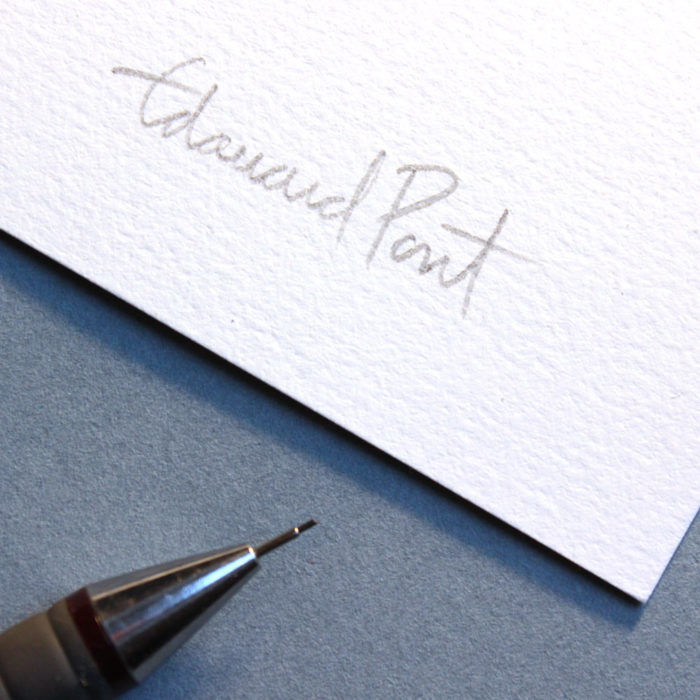 Edouard Pont